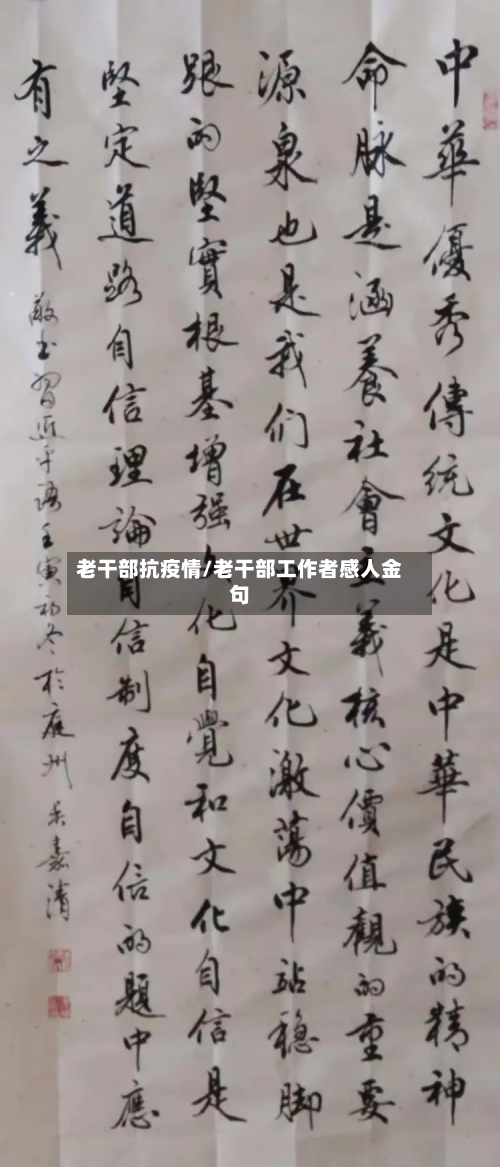 中華優秀傳統文化是中華民族的精神
命脉是涵養社會主義核心價值觀的重要
源泉也是我们在世界文化激蕩中站穩脚
跟的堅實根基增强文化自覺和文化自信是
堅定道路自信理論自信制度自信的題中應
有之義
敬书習近平語壬寅初冬於庭州吴嘉清
老干部抗疫情/老干部工作者感人金
句